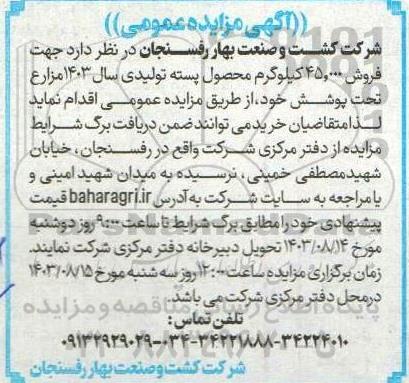 ((آگهی مزایده عمومی))
شرکت کشت و صنعت بهار رفسنجان در نظر دارد جهت
فروش ۴۵٫۰۰۰ کیلوگرم محصول پسته تولیدی سال ۱۴۰۳ مزارع
تحت پوشش خود، از طریق مزایده عمومی اقدام نماید
لذا متقاضیان خرید می توانند ضمن دریافت برگ شرایط
مزایده از دفتر مرکزی شرکت واقع در رفسنجان، خیابان
شهید مصطفی خمینی، نرسیده به میدان شهید امینی و
یا مراجعه به سایت شرکت به آدرس baharagri.ir قیمت
پیشنهادی خود را مطابق برگ شرایط تا ساعت ۹:۰۰ روز دوشنبه
مورخ ۱۴۰۳/۰۸/۱۴ تحویل دبیرخانه دفتر مرکزی شرکت نمایند.
زمان برگزاری مزایده ساعت ۱۲:۰۰ روز سه شنبه مورخ ۱۴۰۳/۰۸/۱۵
در محل دفتر مرکزی شرکت می باشد.
تلفن تماس:
۰۹۱۳۲۹۲۹۰۲۹-۰۳۴-۳۴۲۲۱۸۸۸-۳۴۲۲۴۰۱۰
شرکت کشت و صنعت بهار رفسنجان